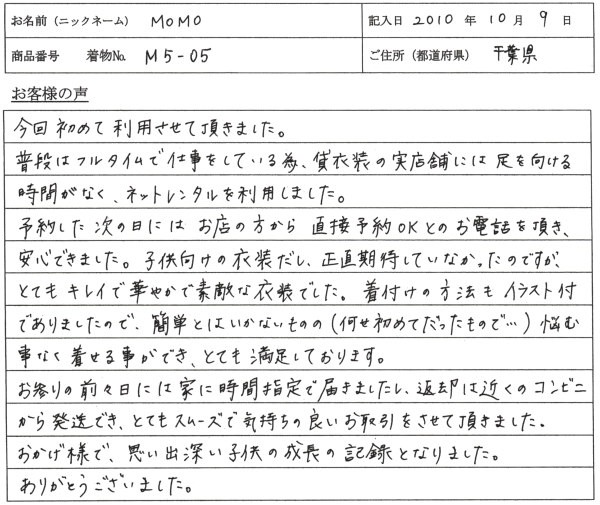 お名前（ニックネーム） MOMO 記入日 2010 年 10 月 9 日
商品番号 着物No. M5-05 ご住所（都道府県） 千葉県
お客様の声
今回初めて利用させて頂きました。
普段はフルタイムで仕事をしている為、貸衣装の実店舗には足を向ける
時間がなく、ネットレンタルを利用しました。
予約した次の日にはお店の方から直接予約OKとのお電話を頂き、
安心できました。子供向けの衣装だし、正直期待していなかったのですが、
とてもキレイで華やかで素敵な衣装でした。着付けの方法もイラスト付
でありましたので、簡単とはいかないものの（何せ初めてだったもので…）悩む
事なく着せる事ができ、とても満足しております。
お参りの前々日には家に時間指定で届きましたし、返却は近くのコンビニ
から発送でき、とてもスムーズで気持ちの良いお取引をさせて頂きました。
おかげ様で、思い出深い子供の成長の記録となりました。
ありがとうございました。